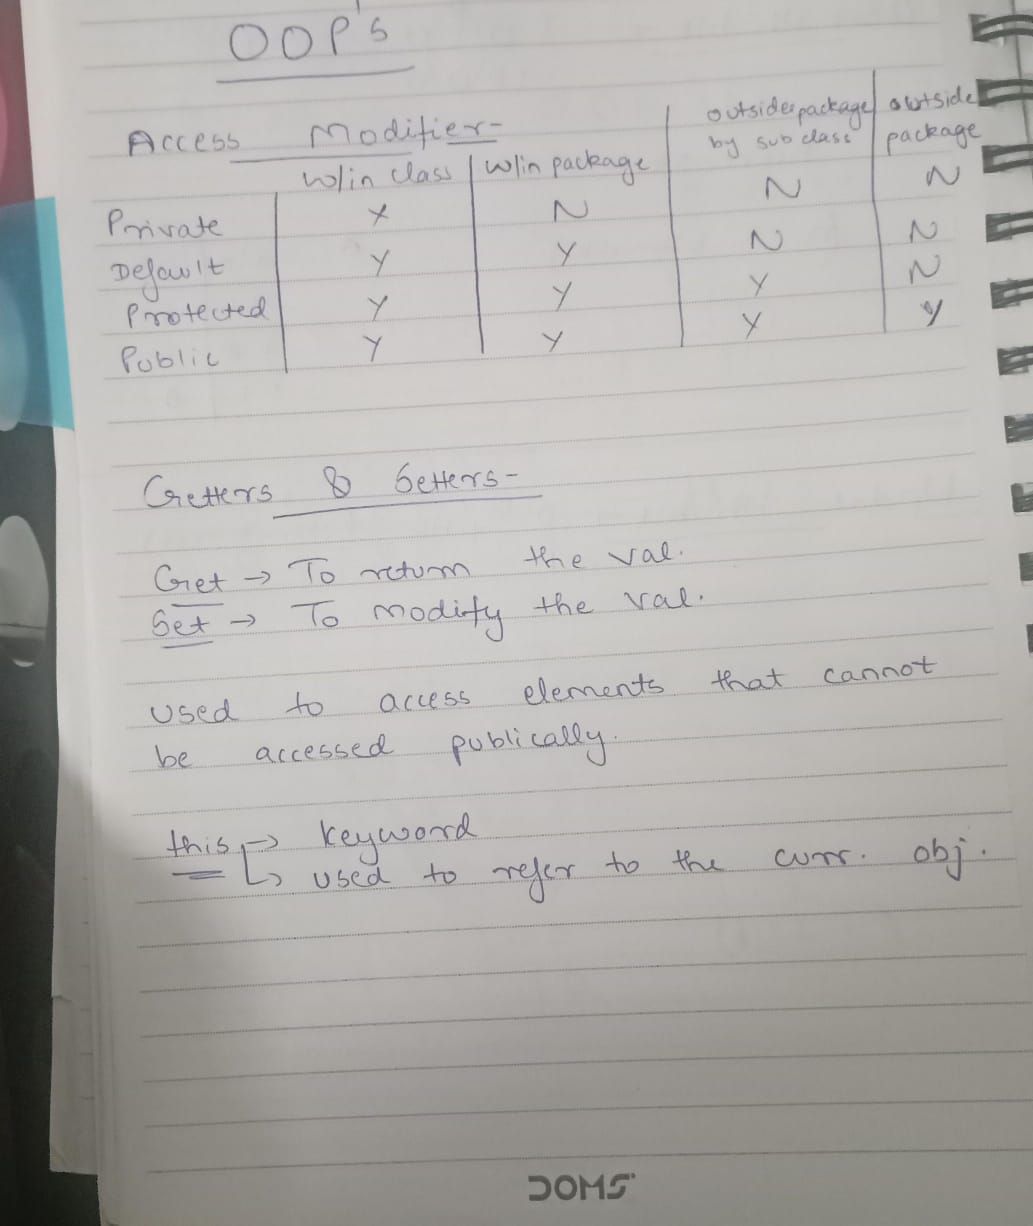 OOP's
Access Modifier-
w/in class | w/in package | outside package by sub class | outside package
Private | Y | N | N | N
Default | Y | Y | N | N
Protected | Y | Y | Y | N
Public | Y | Y | Y | Y
Getters & Setters-
Get → To return the val.
Set → To modify the val.
Used to access elements that cannot
be accessed publically.
this → keyword
↳ used to refer to the curr. obj.
DOMS